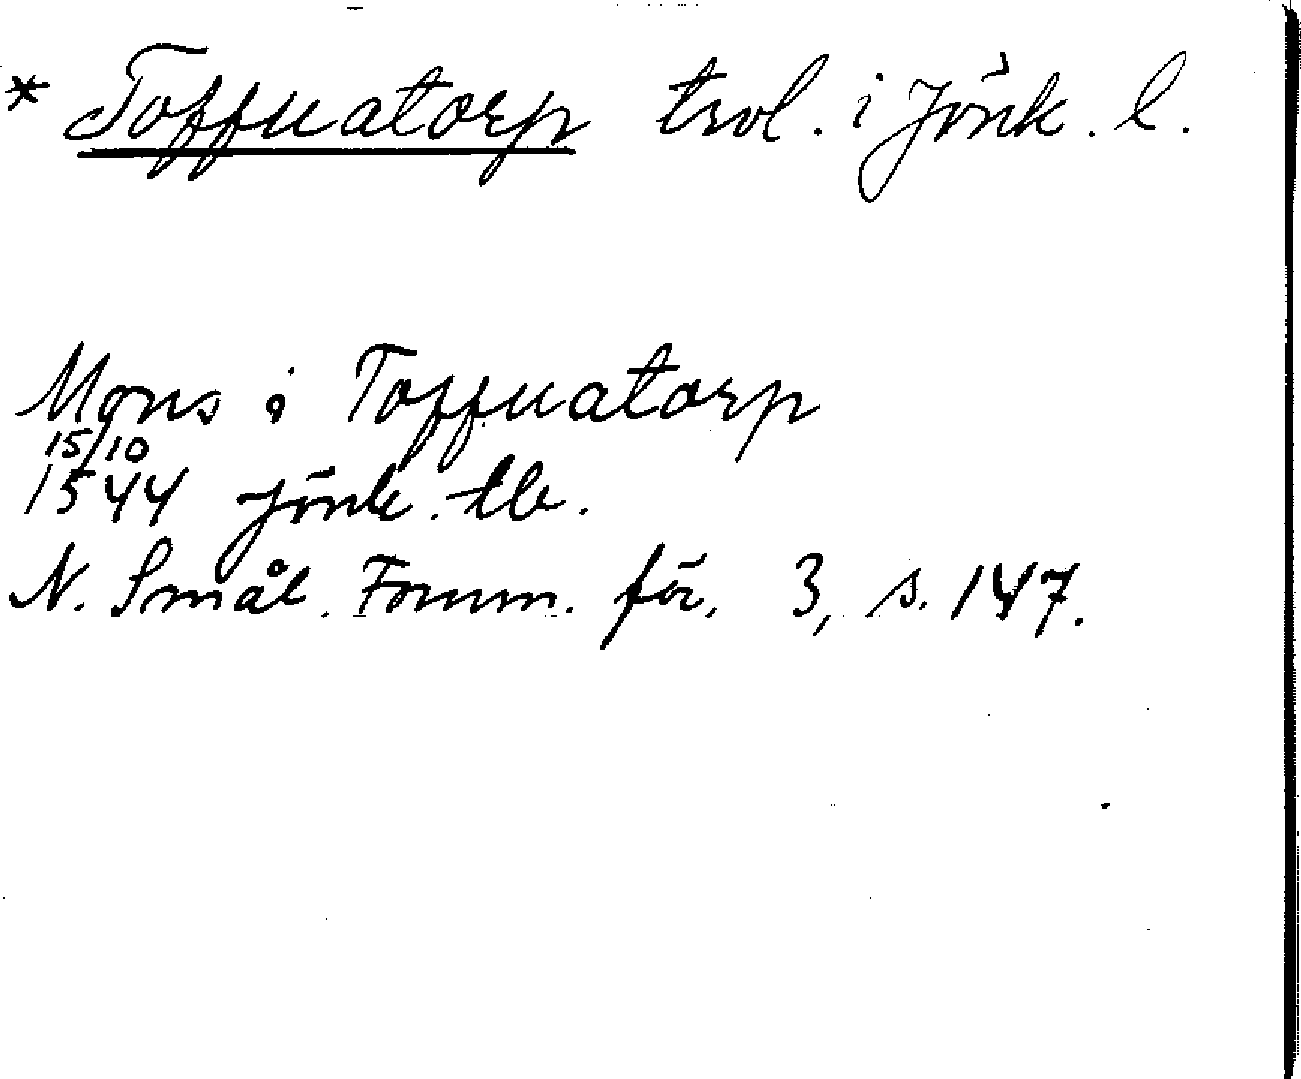 * Toffuatorp trol. i Jönk. l.
Mons i Toffuatorp
15/10
1544 Jönk. tb.
N. Smål. Fornm. för. 3, s. 147.